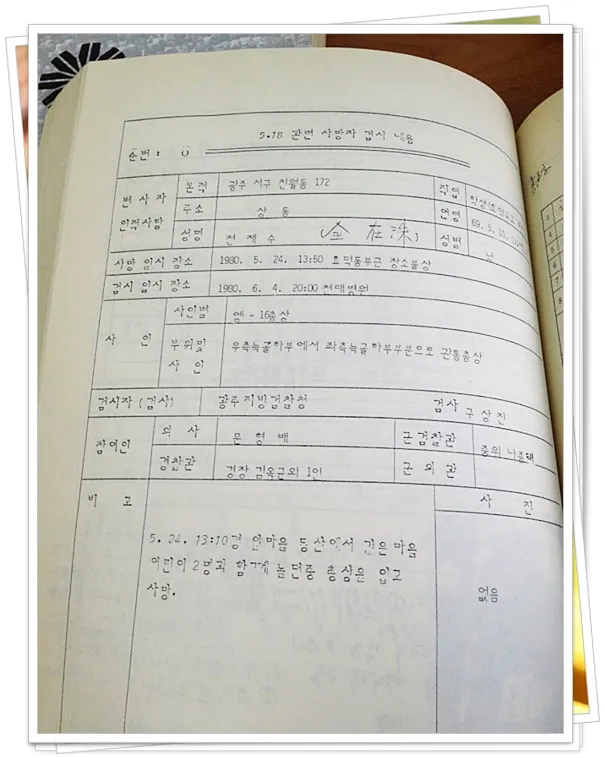 5.18 관련 사망자 검시 내용
순번 :
변사자 인적사항
본적 광주 서구 진월동 172
직업 학생
주소 상동
연령 69. 5. 15.
성명 전재수 (全 在 洙)
성별 남
사망 일시 장소 1980. 5. 24. 13:50 효덕동부근 장소불상
검시 일시 장소 1980. 6. 4. 20:00 전대병원
사인
사인별 엠-16총상
부위및 사인 우측늑골하부에서 좌측늑골하부부분으로 관통총상
검시자 (검사) 광주지방검찰청 검사 구상진
참여인
의사 문형배
군검찰관 중위
경찰관 경장 김옥균외 1인
군의관
비고
사진
5. 24. 13:10경 동산에서 같은 마을
어린이 2명과 함께 놀던중 총상을 입고
사망.
없음